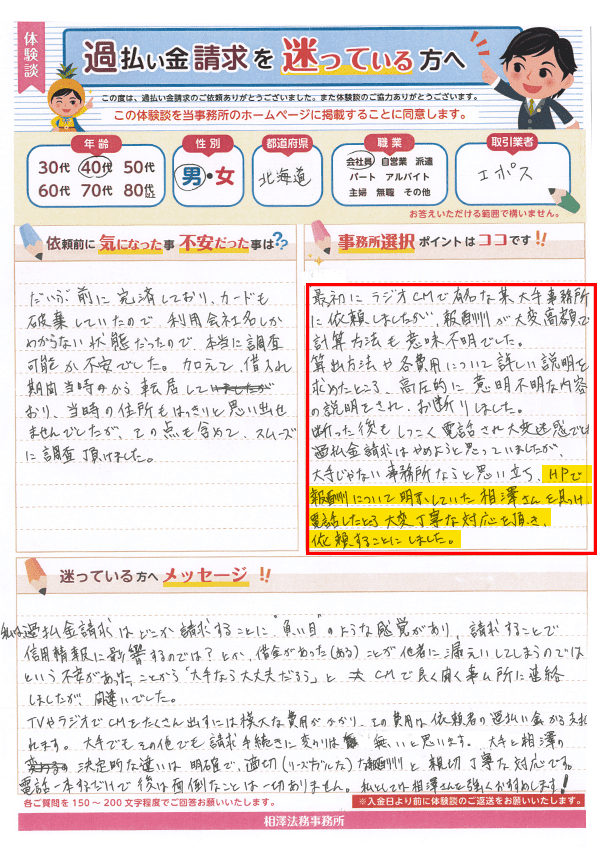 体験談
過払い金請求を迷っている方へ
この度は、過払い金請求のご依頼ありがとうございました。また体験談のご協力ありがとうございます。
この体験談を当事務所のホームページに掲載することに同意します。
年齢
30代 40代 50代
60代 70代 80代以上
性別
男・女
都道府県
北海道
職業
会社員 自営業 派遣
パート アルバイト
主婦 無職 その他
取引業者
エポス
お答えいただける範囲で構いません。
依頼前に気になった事 不安だった事は??
だいぶ前に完済しており、カードも
破棄していたので、利用会社名しか
わからない状態だったので、本当に調査
可能か不安でした。加えて、借入れ
期間当時から転居して
おり、当時の住所もはっきりと思い出せ
ませんでしたが、その点も含めて、スムーズ
に調査頂けました。
事務所選択ポイントはココです!!
最初にラジオCMで有名な某大手事務所
に依頼しましたが、報酬が大変高額で
計算方法も意味不明でした。
算出方法や各費用について詳しい説明を
求めたところ、高圧的に意味不明な内容
の説明をされ、お断りしました。
断った後もしつこく電話され大変迷惑でした
過払金請求はやめようと思っていましたが、
大手じゃない事務所ならと思い立ち、HPで
報酬について明示していた相澤さんを見つけ、
電話したところ大変丁寧な対応を頂き、
依頼することにしました。
迷っている方へメッセージ!!
私は過払金請求はどこか請求することに"負い目"のような感覚があり、請求することで
信用情報に影響するのでは？とか、借金があった(ある)ことが他者に漏えいしてしまうのでは
という不安があったことから「大手なら大丈夫だろう」とCMで良く聞く事ム所に連絡
しましたが、間違いでした。
TVやラジオでCMをたくさん出すには様大な費用がかかり、その費用は依頼者の過払い金から支払
れます。大手でもその他でも請求手続きに変わりは無いと思います。大手と相澤の
決定的な違いは明確で、適切(リーズナブルな)な報酬と親切丁寧な対応です。
電話一本するだけで後は面倒なことは一切ありません。私としては相澤さんを強くおすすめします！
各ご質問を150～200文字程度でご回答お願いいたします。
※入金日より前に体験談のご返送をお願いいたします。
相澤法務事務所